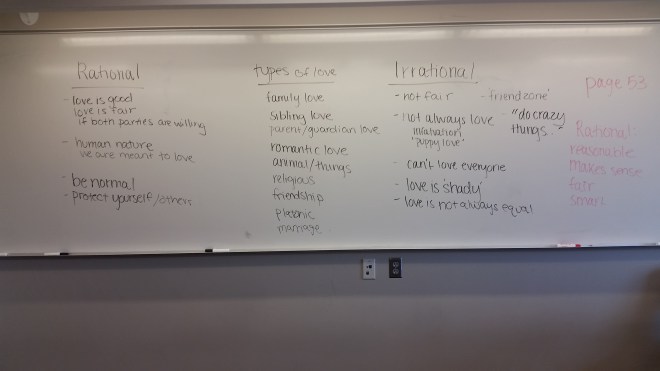 Rational
- love is good
love is fair
if both parties are willing
- human nature
we are meant to love
- be normal
- protect yourself/others
types of love
family love
sibling love
parent/guardian love
romantic love
animal/things
religious
friendship
platonic
marriage
Irrational
- not fair - 'friendzone'
- not always love - "do crazy
infatuation things."
'puppy love'
- can't love everyone
- love is 'shady'
- love is not always equal
page 53
Rational:
reasonable
makes sense
fair
smart